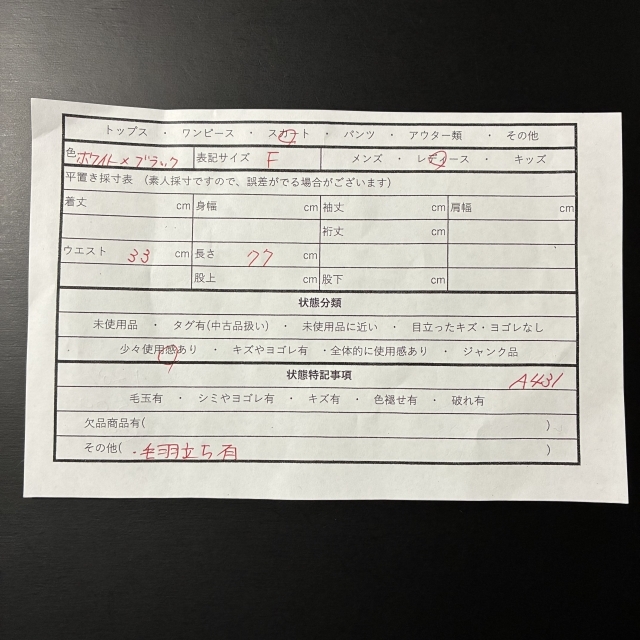 トップス ・ ワンピース ・ スカート ・ パンツ ・ アウター類 ・ その他
色 ホワイト×ブラック 表記サイズ F メンズ ・ レディース ・ キッズ
平置き採寸表 （素人採寸ですので、誤差がでる場合がございます）
着丈 cm 身幅 cm 袖丈 cm 肩幅 cm
裄丈 cm
ウエスト 33 cm 長さ 77 cm
股上 cm 股下 cm
状態分類
未使用品 ・ タグ有(中古品扱い) ・ 未使用品に近い ・ 目立ったキズ・ヨゴレなし
少々使用感あり ・ キズやヨゴレ有 ・全体的に使用感あり ・ ジャンク品
状態特記事項 A431
毛玉有 ・ シミやヨゴレ有 ・ キズ有 ・ 色褪せ有 ・ 破れ有
欠品商品有( )
その他( ・毛羽立ち有 )